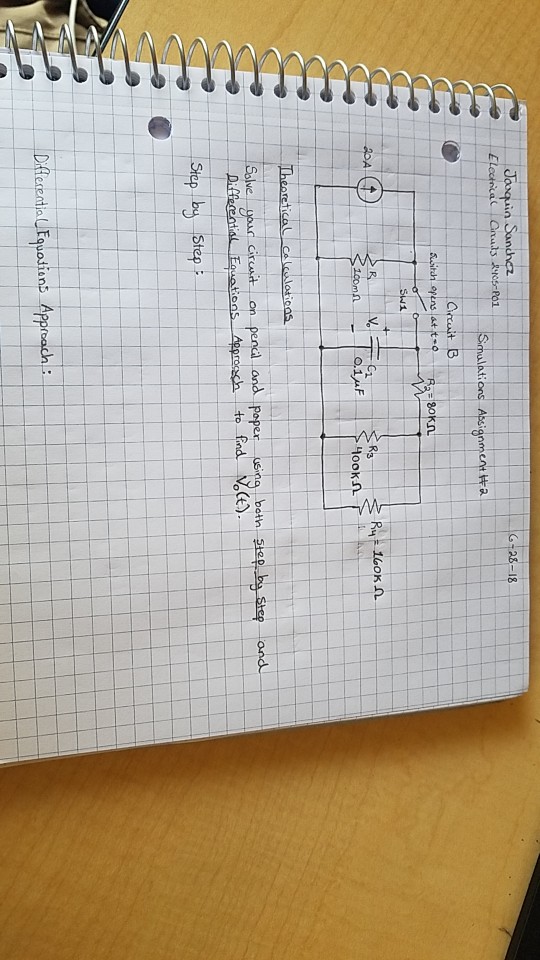 Joaquin Sanchez
6-28-18
Electrical Circuits
Simulations Assignment #2
Circuit B
Switch opens at t=0
SW1
R2 = 80KΩ
20A
R1
200mΩ
+
Vo
-
C1
0.1μF
R3
400KΩ
R4 = 160KΩ
Theoretical Calculations
Solve your circuit on pencil and paper using both Step by Step and
Differential Equations Approach to find Vo(t).
Step by Step:
Differential Equations Approach: